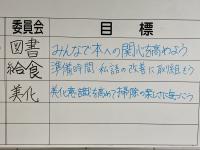 委員会 目標
図書 みんなで本への関心を高めよう
給食 準備時間 私語の改善に取組もう
美化 美化意識を高めて掃除の楽しさに気づこう